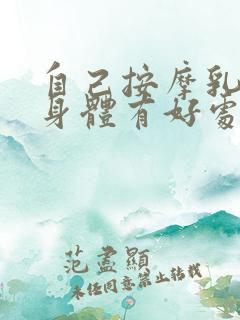 自己按摩乳
身體有好處
范盡顯
未經同意禁止轉載